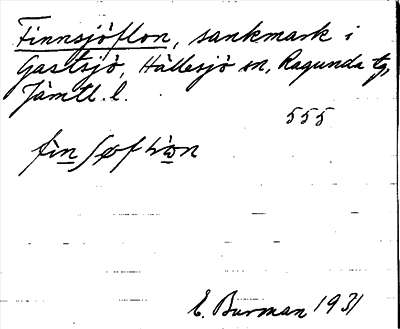 Finnsjöflon, sankmark i
Gastsjö, Hällesjö sn, Ragunda tg,
Jämtl. l.
555
E. Burman 1931